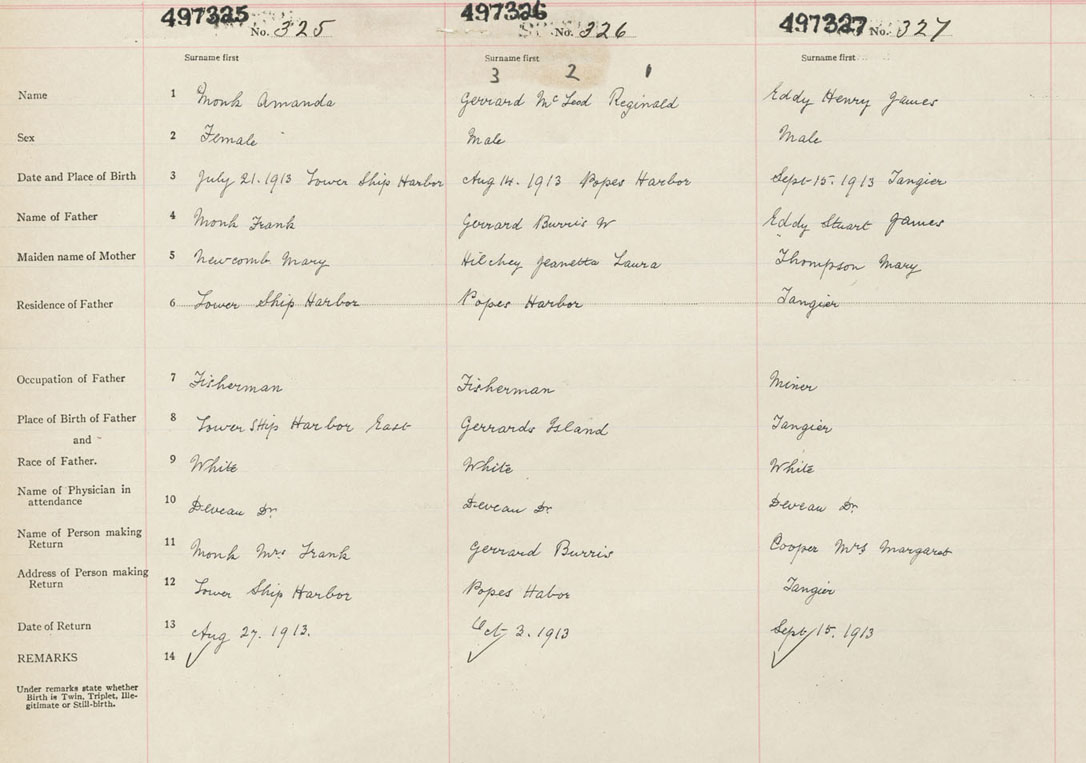 497325 No. 325 497326 No. 326 497327 No. 327
Surname first Surname first Surname first
3 2 1
Name 1 Monk Amanda Gerrard McLeod Reginald Eddy Henry James
Sex 2 Female Male Male
Date and Place of Birth 3 July 21. 1913 Lower Ship Harbor Aug 14. 1913 Popes Harbor Sept 15. 1913 Tangier
Name of Father 4 Monk Frank Gerrard Burris W Eddy Stuart James
Maiden name of Mother 5 Newcomb Mary Hilchey Jeanetta Laura Thompson Mary
Residence of Father 6 Lower Ship Harbor Popes Harbor Tangier
Occupation of Father 7 Fisherman Fisherman Miner
Place of Birth of Father 8 Lower Ship Harbor East Gerrards Island Tangier
and
Race of Father. 9 White White White
Name of Physician in
attendance 10 Deveau Dr. Deveau Dr. Deveau Dr.
Name of Person making
Return 11 Monk Mrs Frank Gerrard Burris Cooper Mrs Margaret
Address of Person making
Return 12 Lower Ship Harbor Popes Habor Tangier
Date of Return 13 Aug 27. 1913. Oct 3. 1913 Sept 15. 1913
REMARKS 14
Under remarks state whether
Birth is Twin, Triplet, Ille-
gitimate or Still-birth.